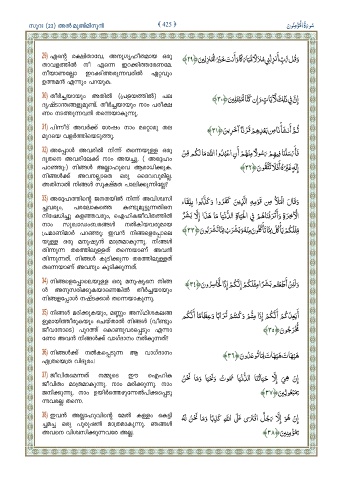 സൂറ (23) അൽ മുഅ്മിനൂൻ
﴾ 425 ﴿
سُورَةُ الْمُؤْمِنُونَ
29) എന്റെ രക്ഷിതാവേ, അനുഗൃഹീതമായ ഒരു
താവളത്തിൽ നീ എന്നെ ഇറക്കിത്തരേണമേ.
നീയാണല്ലോ ഇറക്കിത്തരുന്നവരിൽ ഏറ്റവും
ഉത്തമൻ എന്നും പറയുക.
وَقُل رَّبِّ أَنزِلْنِي مُنزَلًا مُّبَارَكًا وَأَنتَ خَيْرُ الْمُنزِلِينَ ﴿٢٩﴾
30) തീർച്ചയായും അതിൽ (പ്രളയത്തിൽ) പല
ദൃഷ്ടാന്തങ്ങളുമുണ്ട്. തീർച്ചയായും നാം പരീക്ഷ
ണം നടത്തുന്നവൻ തന്നെയാകുന്നു.
إِنَّ فِي ذَٰلِكَ لَآيَاتٍ وَإِن كُنَّا لَمُبْتَلِينَ ﴿٣٠﴾
31) പിന്നീട് അവർക്ക് ശേഷം നാം മറ്റൊരു തല
മുറയെ വളർത്തിയെടുത്തു.
ثُمَّ أَنشَأْنَا مِن بَعْدِهِمْ قَرْنًا آخَرِينَ ﴿٣١﴾
32) അപ്പോൾ അവരിൽ നിന്ന് തന്നെയുള്ള ഒരു
ദൂതനെ അവരിലേക്ക് നാം അയച്ചു. ( അദ്ദേഹം
പറഞ്ഞു:) നിങ്ങൾ അല്ലാഹുവെ ആരാധിക്കുക.
നിങ്ങൾക്ക് അവനല്ലാതെ ഒരു ദൈവവുമില്ല.
അതിനാൽ നിങ്ങൾ സൂക്ഷ്മത പാലിക്കുന്നില്ലേ?
فَأَرْسَلْنَا فِيهِمْ رَسُولًا مِّنْهُمْ أَنِ اعْبُدُوا اللَّهَ مَا لَكُم مِّنْ
إِلَٰهٍ غَيْرُهُ أَفَلَا تَتَّقُونَ ﴿٣٢﴾
33) അദ്ദേഹത്തിന്റെ ജനതയിൽ നിന്ന് അവിശ്വസി
ച്ചവരും, പരലോകത്തെ കണ്ടുമുട്ടുന്നതിനെ
നിഷേധിച്ചു കളഞ്ഞവരും, ഐഹികജീവിതത്തിൽ
നാം സുഖാഡംബരങ്ങൾ നൽകിയവരുമായ
പ്രമാണിമാർ പറഞ്ഞു: ഇവൻ നിങ്ങളെപ്പോലെ
യുള്ള ഒരു മനുഷ്യൻ മാത്രമാകുന്നു. നിങ്ങൾ
തിന്നുന്ന തരത്തിലുള്ളത് തന്നെയാണ് അവൻ
തിന്നുന്നത്. നിങ്ങൾ കുടിക്കുന്ന തരത്തിലുള്ളത്
തന്നെയാണ് അവനും കുടിക്കുന്നത്.
وَقَالَ الْمَلَأُ مِن قَوْمِهِ الَّذِينَ كَفَرُوا وَكَذَّبُوا بِلِقَاءِ
الْآخِرَةِ وَأَتْرَفْنَاهُمْ فِي الْحَيَاةِ الدُّنْيَا مَا هَٰذَا إِلَّا بَشَرٌ
مِّثْلُكُمْ يَأْكُلُ مِمَّا تَأْكُلُونَ مِنْهُ وَيَشْرَبُ مِمَّا تَشْرَبُونَ ﴿٣٣﴾
34) നിങ്ങളെപ്പോലെയുള്ള ഒരു മനുഷ്യനെ നിങ്ങ
ൾ അനുസരിക്കുകയാണെങ്കിൽ തീർച്ചയായും
നിങ്ങളപ്പോൾ നഷ്ടക്കാർ തന്നെയാകുന്നു.
وَلَئِنْ أَطَعْتُم بَشَرًا مِّثْلَكُمْ إِنَّكُمْ إِذًا لَّخَاسِرُونَ ﴿٣٤﴾
35) നിങ്ങൾ മരിക്കുകയും, മണ്ണും അസ്ഥിശകലങ്ങ
ളുമായിത്തീരുകയും ചെയ്താൽ നിങ്ങൾ (വീണ്ടും
ജീവനോടെ) പുറത്ത് കൊണ്ടുവരപ്പെടും എന്നാ
ണോ അവൻ നിങ്ങൾക്ക് വാഗ്ദാനം നൽകുന്നത്?
أَيَعِدُكُمْ أَنَّكُمْ إِذَا مِتُّمْ وَكُنتُمْ تُرَابًا وَعِظَامًا أَنَّكُم
مُّخْرَجُونَ ﴿٣٥﴾
36) നിങ്ങൾക്ക് നൽകപ്പെടുന്ന ആ വാഗ്ദാനം
എത്രയെത്ര വിദൂരം!
هَيْهَاتَ هَيْهَاتَ لِمَا تُوعَدُونَ ﴿٣٦﴾
37) ജീവിതമെന്നത് നമ്മുടെ ഈ ഐഹിക
ജീവിതം മാത്രമാകുന്നു. നാം മരിക്കുന്നു. നാം
ജനിക്കുന്നു. നാം ഉയിർത്തെഴുന്നേൽപിക്കപ്പെടു
ന്നവരല്ല തന്നെ.
إِنْ هِيَ إِلَّا حَيَاتُنَا الدُّنْيَا نَمُوتُ وَنَحْيَا وَمَا نَحْنُ
بِمَبْعُوثِينَ ﴿٣٧﴾
38) ഇവൻ അല്ലാഹുവിന്റെ മേൽ കള്ളം കെട്ടി
ച്ചമച്ച ഒരു പുരുഷൻ മാത്രമാകുന്നു. ഞങ്ങൾ
അവനെ വിശ്വസിക്കുന്നവരേ അല്ല.
إِنْ هُوَ إِلَّا رَجُلٌ افْتَرَىٰ عَلَى اللَّهِ كَذِبًا وَمَا نَحْنُ لَهُ
بِمُؤْمِنِينَ ﴿٣٨﴾